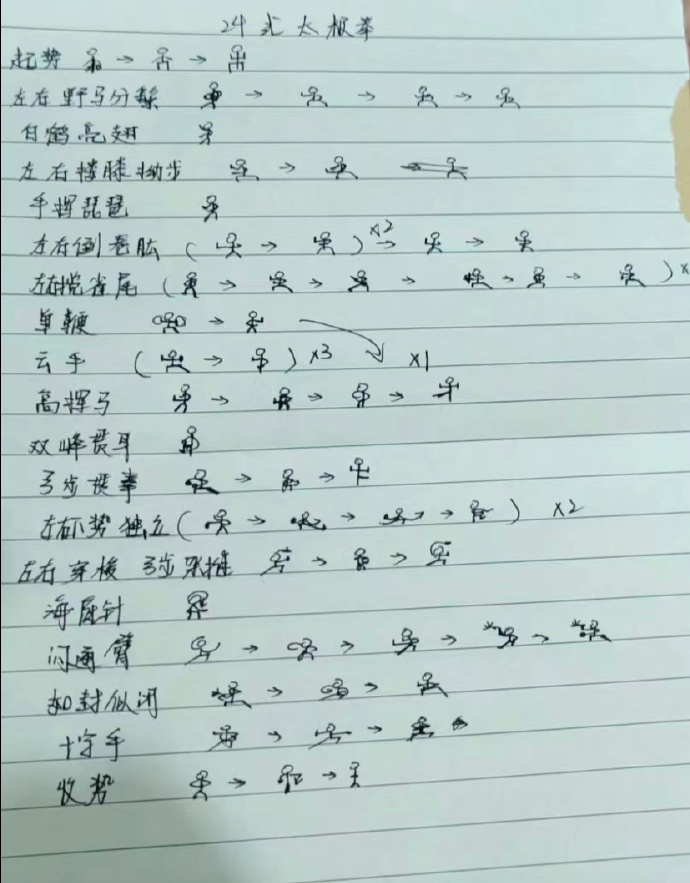 24式太极拳
起势 → →
左右野马分鬃 → → →
白鹤亮翅
左右搂膝拗步 →
手挥琵琶
左右倒卷肱 ( → ) ×2 → →
左右揽雀尾 ( → → → → → ) ×
单鞭 →
云手 ( → ) ×3 ×1
高探马 → → →
双峰贯耳
弓步 拳 → →
左右下势独立 ( → → → ) ×2
左右穿梭 弓步 推 → →
海底针
闪通臂 → → → →
如封似闭 → →
十字手 → →
收势 → →